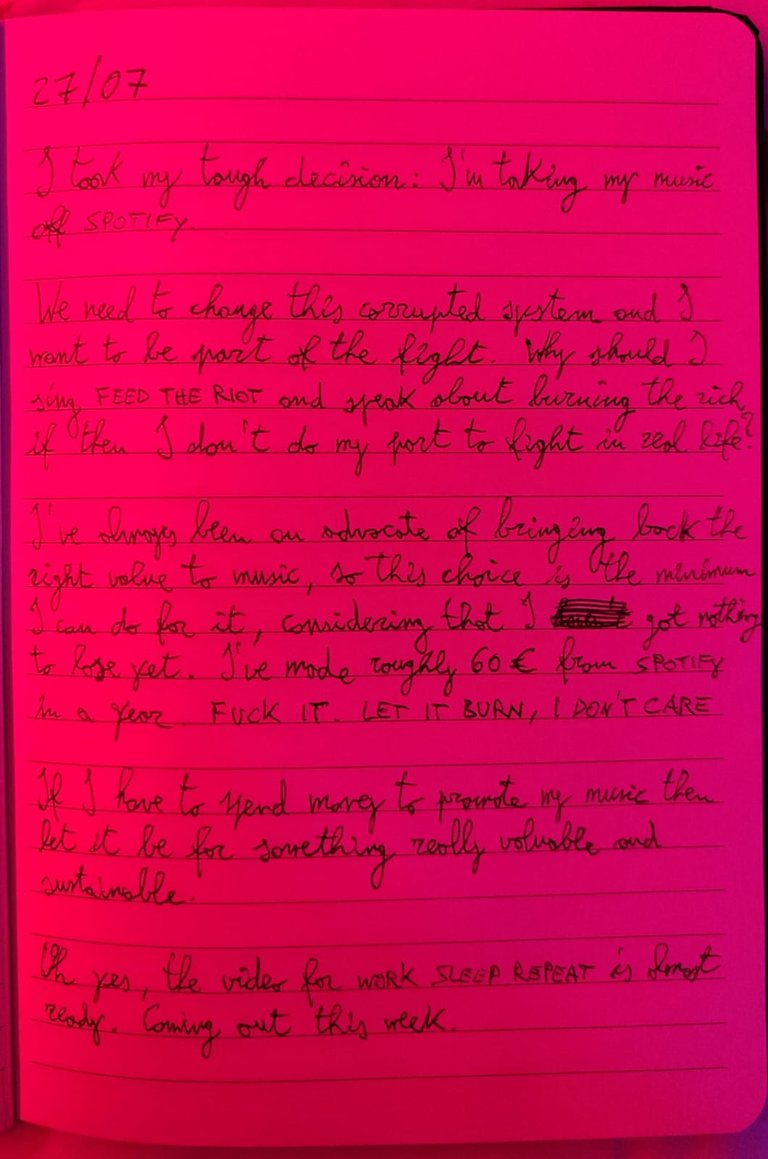 27/07
I took my tough decision: I'm taking my music
off SPOTIFY.
We need to change this corrupted system and I
want to be part of the fight. Why should I
sing FEED THE RIOT and speak about burning the rich
if then I don't do my part to fight in real life?
I've always been an advocate of bringing back the
right value to music, so this choice is the minimum
I can do for it, considering that I got nothing
to lose yet. I've made roughly 60 € from SPOTIFY
in a year. FUCK IT. LET IT BURN, I DON'T CARE
If I have to spend money to promote my music then
let it be for something really valuable and
sustainable.
Oh yes, the video for WORK SLEEP REPEAT is almost
ready. Coming out this week.